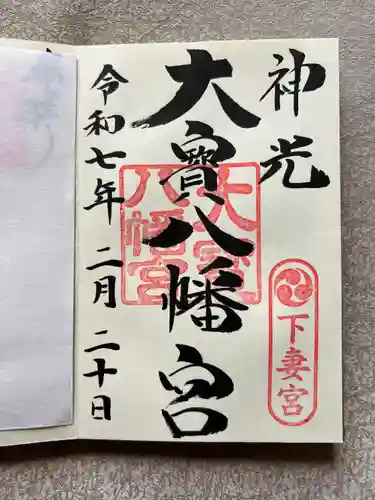 神光
下妻宮
大寳八幡宮
大宝
八幡宮
令和七年 二月 二十日